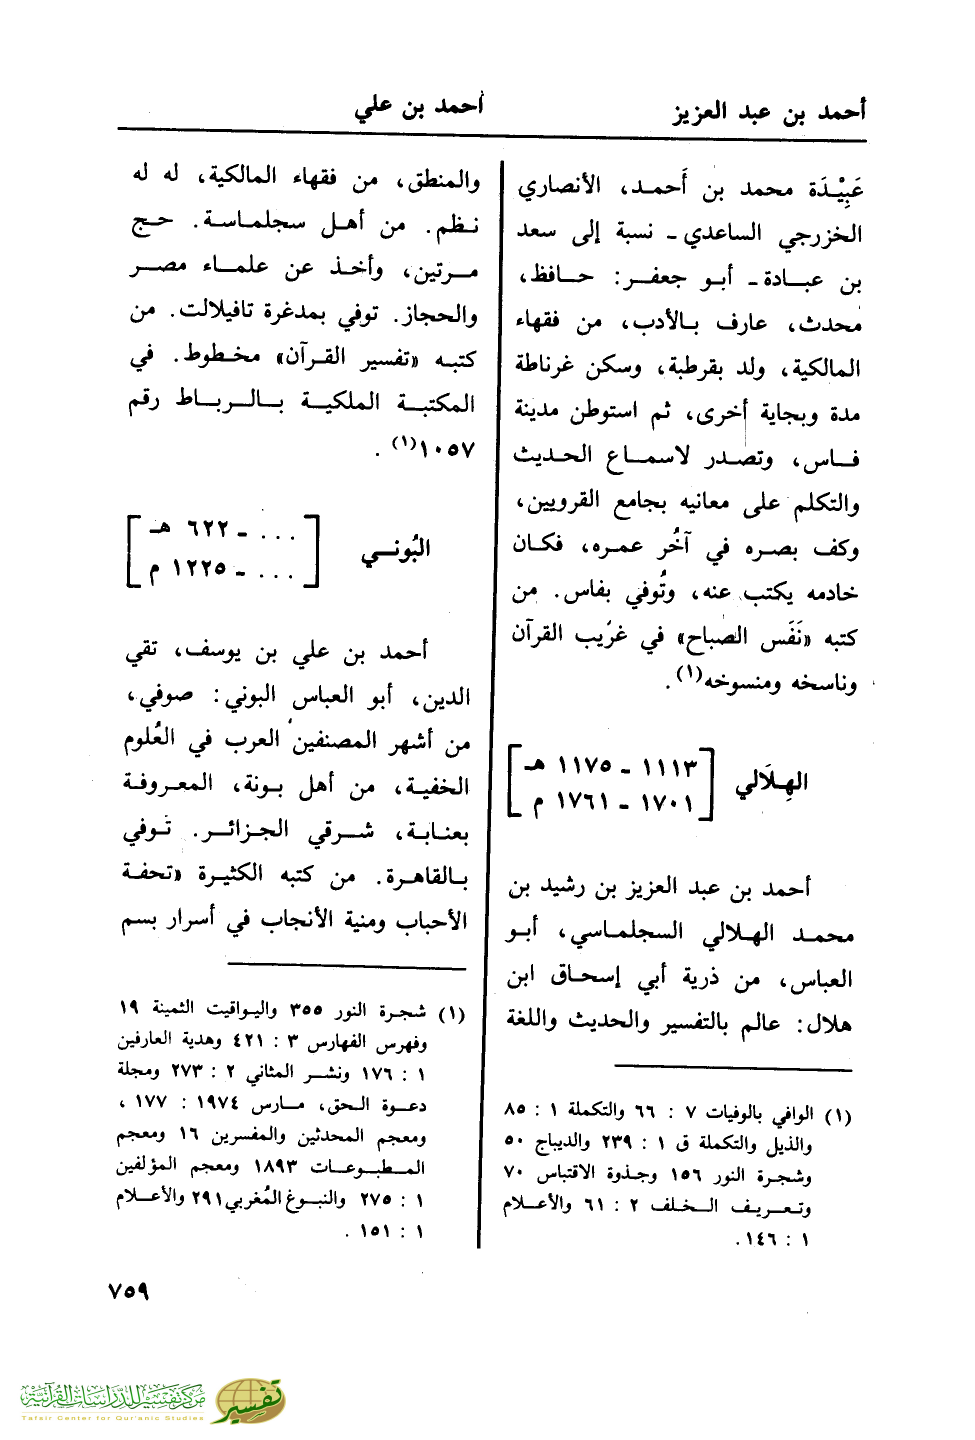 أحمد بن عبد العزيز
أحمد بن علي
عَبِيْدَة محمد بن أَحمد، الأنصاري
الخزرجي الساعدي - نسبة إلى سعد
بن عبادة - أبو جعفر: حافظ،
محدث، عارف بالأدب، من فقهاء
المالكية، ولد بقرطبة، وسكن غرناطة
مدة وبجاية أخرى، ثم استوطن مدينة
فاس، وتصدر لاسماع الحديث
والتكلم على معانيه بجامع القرويين،
وكف بصره في آخُر عمره، فكان
خادمه يكتب عنه، وتُوفي بفاس. من
كتبه «نَفَس الصباح» في غرَيب القرآن
وناسخه ومنسوخه(١).
الهِلَالي [١١١٣ - ١١٧٥ هـ
١٧٠١ - ١٧٦١ م]
أحمد بن عبد العزيز بن رشيد بن
محمد الهلالي السجلماسي، أبو
العباس، من ذرية أبي إسحاق ابن
هلال: عالم بالتفسير والحديث واللغة
(١) الوافي بالوفيات ٧ : ٦٦ والتكملة ١ : ٨٥
والذيل والتكملة ق ١ : ٢٣٩ والديباج ٥٠
وشجرة النور ١٥٦ وجذوة الاقتباس ٧٠
وتعريف الخلف ٢ : ٦١ والأعلام
١ : ١٤٦.
والمنطق، من فقهاء المالكية، له له
نظم. من أهل سجلماسة. حج
مرتين، وأخذ عن علماء مصر
والحجاز. توفي بمدغرة تافيلالت. من
كتبه «تفسير القرآن» مخطوط. في
المكتبة الملكية بالرباط رقم
١٠٥٧(١).
البُوني [... - ٦٢٢ هـ
... - ١٢٢٥ م]
أحمد بن علي بن يوسف، تقي
الدين، أبو العباس البوني: صوفي،
من أشهر المصنفين العرب في العُلوم
الخفية، من أهل بونة، المعروفة
بعنابة، شرقي الجزائر. توفي
بالقاهرة. من كتبه الكثيرة «تحفة
الأحباب ومنية الأنجاب في أسرار بسم
(١) شجرة النور ٣٥٥ واليواقيت الثمينة ١٩
وفهرس الفهارس ٣ : ٤٢١ وهدية العارفين
١ : ١٧٦ ونشر المثاني ٢ : ٢٧٣ ومجلة
دعوة الحق، مارس ١٩٧٤ : ١٧٧ ،
ومعجم المحدثين والمفسرين ١٦ ومعجم
المطبوعات ١٨٩٣ ومعجم المؤلفين
١ : ٢٧٥ والنبوغ المُغربي ٢٩١ والأعلام
١ : ١٥١ .
٧٥٩
مركز تفسير للدراسات القرآنية
Tafsir Center for Qur'anic Studies
تفسير